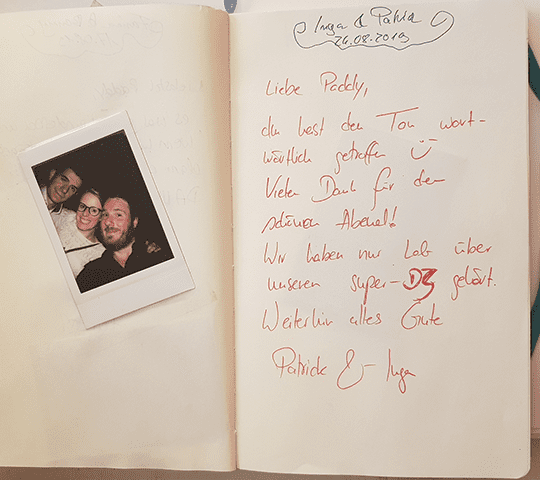 Inga & Patrick
24.08.2019
Liebe Paddy,
du hast den Ton wort-
wörtlich getroffen
Vielen Dank für den
schönen Abend!
Wir haben nur Lob über
unseren super-DJ gehört.
Weiterhin alles Gute
Patrick & Inga